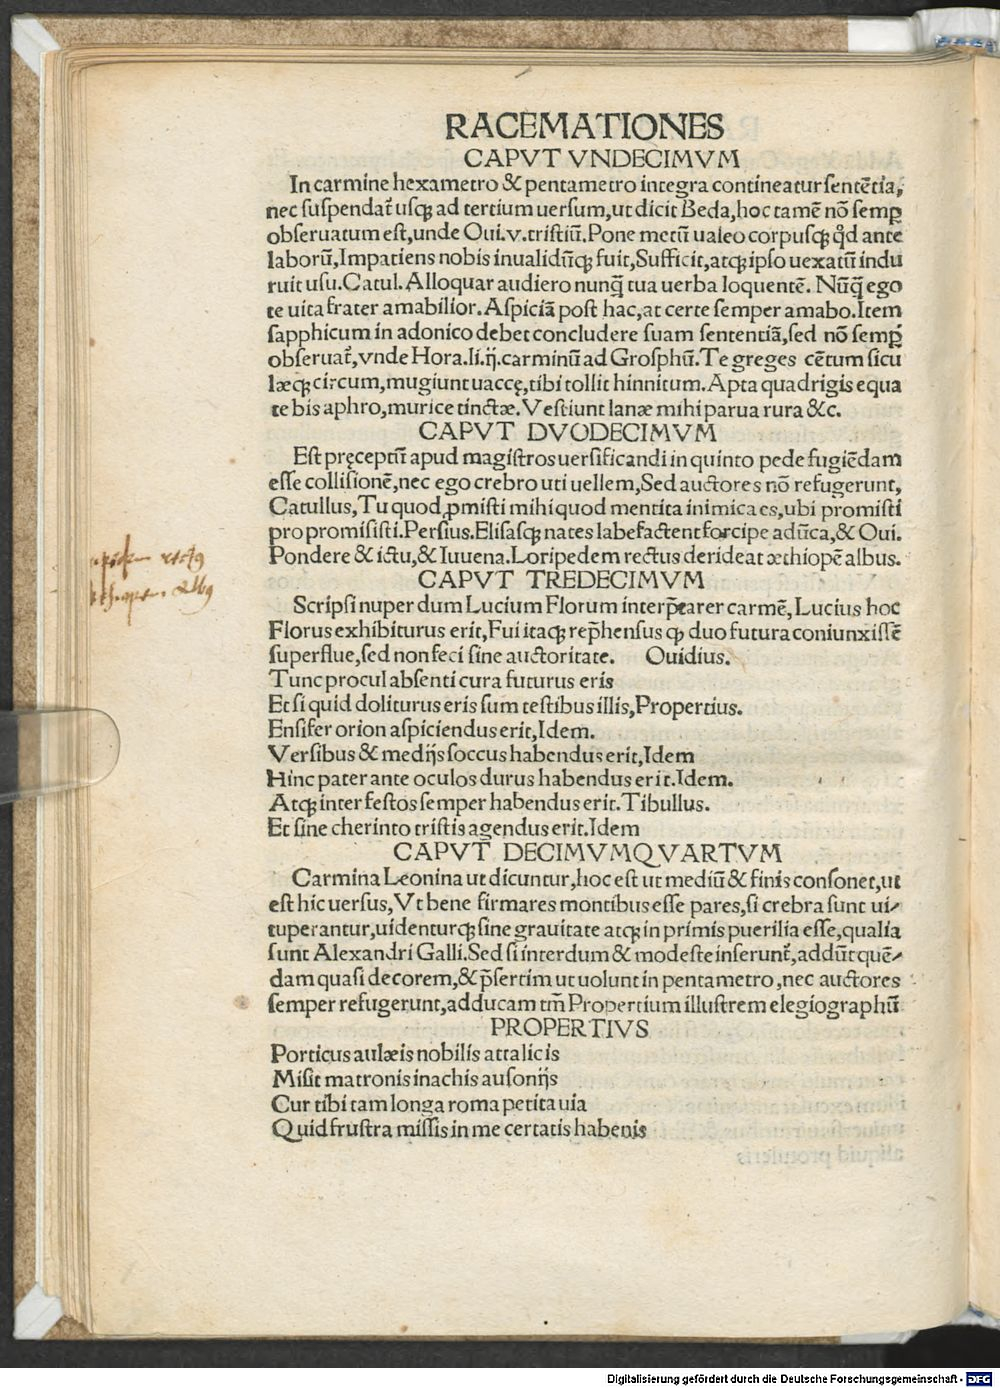 RACEMATIONES
CAPVT VNDECIMVM
In carmine hexametro & pentametro integra contineatur sentētia,
nec suspendat᷑ usq; ad tertium uersum, ut dicit Beda, hoc tamē nō semꝑ
obseruatum est, unde Oui.v.tristiū. Pone metū ualeo corpusq; qd̓ ante
laborū, Impatiens nobis inualidūq; fuit, Sufficit, atq; ipso uexatū indu
ruit usu. Catul. Alloquar audiero nunq̄ tua uerba loquentē. Nūq̄ ego
te uita frater amabilior. Aspiciā post hac, at certe semper amabo. Item
sapphicum in adonico debet concludere suam sententiā, sed nō semꝑ
obseruat᷑, vnde Hora.li.ij.carminū ad Grosphū. Te greges cētum sicu
læq; circum, mugiunt uaccę, tibi tollit hinnitum. Apta quadrigis equa
te bis aphro, murice tinctæ. Vestiunt lanæ mihi parua rura &c.
CAPVT DVODECIMVM
Est pręceptū apud magistros uersificandi in quinto pede fugiēdam
esse collisionē, nec ego crebro uti uellem, Sed auctores nō refugerunt,
Catullus, Tu quod ꝓmisti mihi quod mentita inimica es, ubi promisti
pro promisisti. Persius. Elisasq; nates labefactent forcipe adūca, & Oui.
Pondere & ictu, & Iuuena. Loripedem rectus derideat æthiopē albus.
CAPVT TREDECIMVM
Scripsi nuper dum Lucium Florum interp̄tarer carmē, Lucius hoc
Florus exhibiturus erit, Fui itaq; rep̄hensus ꝙ duo futura coniunxissē
superflue, sed non feci sine auctoritate. Ouidius.
Tunc procul absenti cura futurus eris
Et si quid doliturus eris sum testibus illis, Propertius.
Ensifer orion aspiciendus erit, Idem.
Versibus & medijs soccus habendus erit, Idem
Hinc pater ante oculos durus habendus erit. Idem.
Atq; inter festos semper habendus erit. Tibullus.
Et sine cherinto tristis agendus erit. Idem
CAPVT DECIMVMQVARTVM
Carmina Leonina ut dicuntur, hoc est ut mediū & finis consonet, ut
est hic uersus, Vt bene firmares montibus esse pares, si crebra sunt ui⸗
tuperantur, uidenturq; sine grauitate atq; in primis puerilia esse, qualia
sunt Alexandri Galli. Sed si interdum & modeste inserunt᷑, addūt quē⸗
dam quasi decorem, & p̄sertim ut uolunt in pentametro, nec auctores
semper refugerunt, adducam tm̄ Propertium illustrem elegiographū
PROPERTIVS
Porticus aulæis nobilis attalicis
Misit matronis inachis ausonijs
Cur tibi tam longa roma petita uia
Quid frustra missis in me certatis habenis
Digitalisierung gefördert durch die Deutsche Forschungsgemeinschaft - DFG